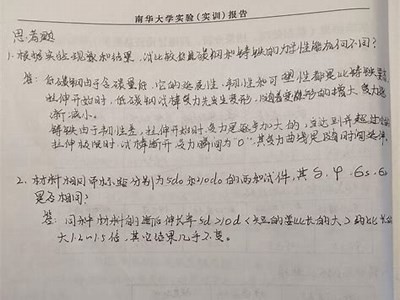 南华大学实验（实训）报告
思考题
1. 根据实验现象和结果，试比较低碳钢和铸铁的力学性能有何不同？
答：低碳钢由于含碳量低，它的延展性、韧性和可塑性都是比铸铁
拉伸开始时，低碳钢试棒受力先发生变形，随着变形的增大，受力逐
渐减小。
铸铁由于韧性差，拉伸开始时，受力是逐步加大的，当达到并超过
拉伸极限时，试棒断开受力瞬间为"0"，其受力曲线是随时间
2. 材料相同而标距分别为5d0和10d0的两种试件，其δ、φ、σs、σb
是否相同？
答：同种材料的断后伸长率5d>10d（短的要比长的大）
大1.2~1.5倍，其它结果几乎不变。